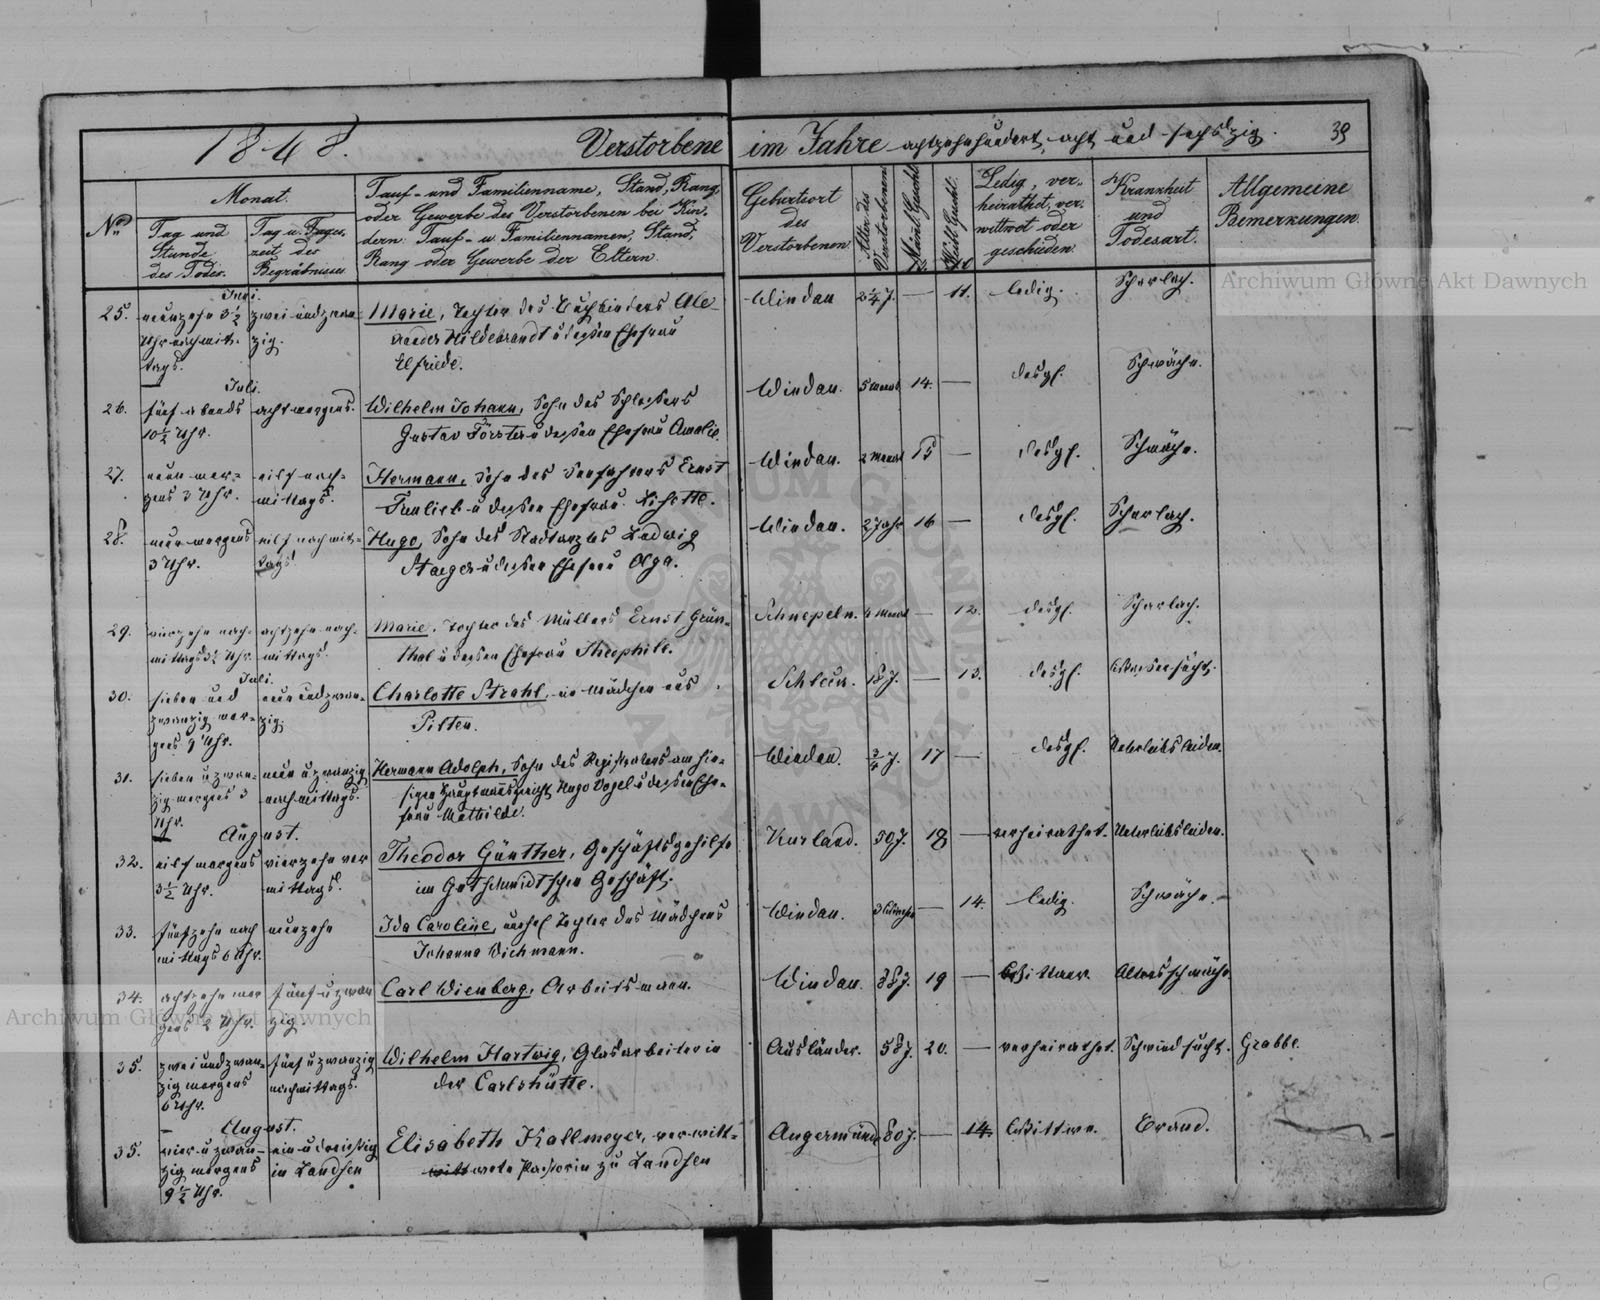 1868.
Verstorbene im Jahre achtzehnhundert acht und sechszig.
39
No
Monat.
Tag und
Stunde
des Todes.
Tag u. Tages-
zeit des
Begräbnisses
Tauf- und Familienname, Stand, Rang,
oder Gewerbe des Verstorbenen bei Kin-
dern: Tauf- u. Familiennamen, Stand,
Rang oder Gewerbe der Eltern.
Geburtsort
des
Verstorbenen
Alter des
Verstorbenen
Männl. Geschl.
Weibl. Geschl.
Ledig, ver-
heirathet, ver-
wittwet oder
geschieden.
Krankheit
und
Todesart.
Allgemeine
Bemerkungen.
Juni.
25.
neunzehn 3½
Uhr nachmit-
tags.
zwei und zwan-
zig.
Marie, Tochter des Buchbinders Ale-
xander Hildebrandt u dessen Ehefrau
Elfriede.
Windau 2¼ J. — 11. ledig. Scharlach.
Juli.
26.
fünf abends
10½ Uhr.
acht morgens.
Wilhelm Johann, Sohn des Schlossers
Gustav Förster u dessen Ehefrau Amalie.
Windau. 5 Monat 14. — desgl. Schwäche.
27.
neun mor-
gens 3 Uhr.
eilf nach-
mittags.
Hermann, Sohn des Ernst
u dessen Ehefrau Lisette.
Windau. 2 Monat 15 — desgl. Schwäche.
28.
neun morgens
3 Uhr.
eilf nachmit-
tags.
Hugo, Sohn des Stadtarztes Ludwig
Staeger u dessen Ehefrau Olga.
Windau. 2 Jahr 16 — desgl. Scharlach.
29.
vierzehn nach-
mittags 3½ Uhr.
achtzehn nach-
mittags.
Marie, Tochter des Müllers Ernst Grün-
thal u dessen Ehefrau Theophile.
Schnepeln. Monat — 12. desgl. Scharlach.
Juli.
30.
sieben und
zwanzig mor-
gens 9 Uhr.
neun und zwan-
zig.
Charlotte Strahl, ein Mädchen aus
Pilten.
Schleck. 18 J. — 13. desgl. Wassersucht.
31.
sieben u zwan-
zig morgens 3
Uhr.
neun u zwanzig
nachmittags.
Hermann Adolph, Sohn des Registrators am hie-
sigen Hauptmannsgericht Hugo Vogel u dessen Ehe-
frau Mathilde.
Windau. ¾ J. 17 — desgl. Unterleibsleiden.
August.
32.
eilf morgens
3½ Uhr.
vierzehn vor
mittags.
Theodor Günther, Geschäftsgehilfe
im Getschmidt'schen Geschäft.
Kurland. 50 J. 18 — verheirathet. Unterleibsleiden.
33.
fünfzehn nach
mittags 6 Uhr.
neunzehn
Ida Caroline, unehel Tochter des Mädchens
Johanna Dichmann.
Windau. 3 Wochen — 14. ledig. Schwäche.
34.
achtzehn mor
gens 2 Uhr.
fünf u zwan
zig.
Carl Wienberg, Arbeitsmann.
Windau. 88 J. 19 — Wittwer. Altersschwäche
35.
zwei und zwan-
zig morgens
6 Uhr.
fünf u zwanzig
nachmittags.
Wilhelm Hartwig, Glasarbeiter in
der Carlshütte.
Ausländer. 58 J. 20. — verheirathet. Schwindsucht. Grabbe.
August.
35.
vier u zwan-
zig morgens
9½ Uhr.
ein u dreissig
in Landsen
Elisabeth Kallmeyer, verwitt-
wete Pastorin zu Landsen
Angermünde 80 J. — 14. Wittwe. Brand.
Archiwum Główne Akt Dawnych
Archiwum Główne Akt Dawnych